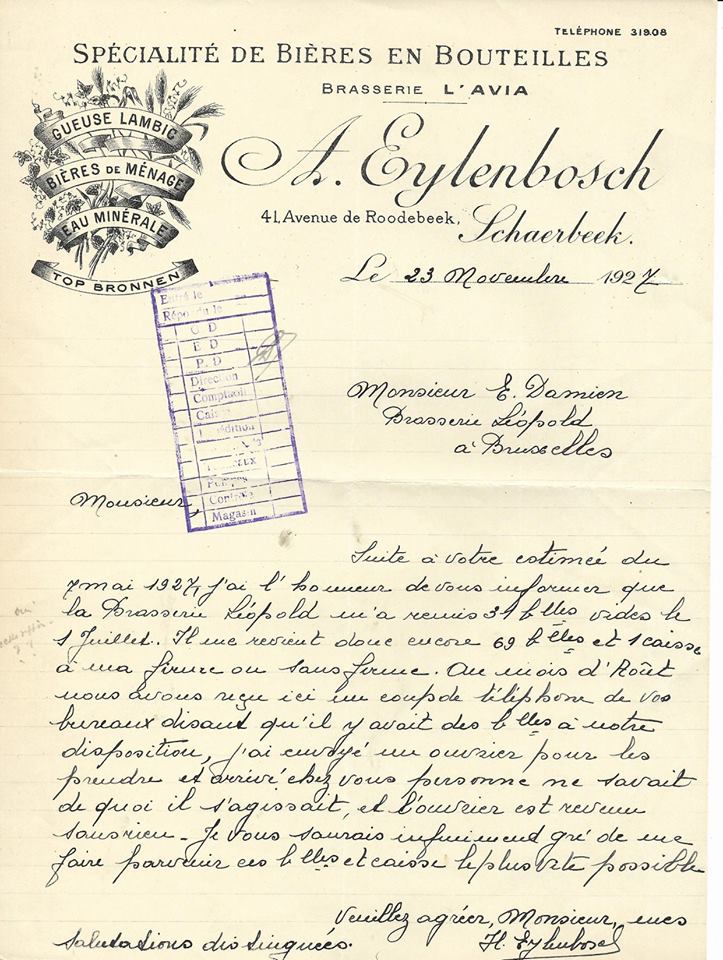 TELÉPHONE 319.08
SPÉCIALITÉ DE BIÈRES EN BOUTEILLES
BRASSERIE L'AVIA
GUEUSE LAMBIC
BIÈRES DE MÉNAGE
EAU MINÉRALE
TOP BRONNEN
A. Eylenbosch
41, Avenue de Roodebeek, Schaerbeek.
Le 23 Novembre 1927
Entré le
Répondu le
C D
E D
P. D
Direction
Comptabil
Caisse
Expédition
Contrôle
Magasin
Monsieur E. Damien
Brasserie Léopold
à Bruxelles
Monsieur,
Suite à votre estimée du
7 mai 1927, j'ai l'honneur de vous informer que
la Brasserie Léopold m'a remis 31 blles vides le
1 Juillet. Il me revient donc encore 69 blles et 1 caisse
à ma firme ou sans firme. Au mois d'Août
nous avons reçu ici un coup de téléphone de vos
bureaux disant qu'il y avait des blles à notre
disposition, j'ai envoyé un ouvrier pour les
prendre et arrivé chez vous personne ne savait
de quoi il s'agissait, et l'ouvrier est revenu
sans rien. Je vous saurais infiniment gré de me
faire parvenir ces blles et caisse le plus vite possible
Veuillez agréer, Monsieur, mes
salutations distinguées.
H. Eylenbosch